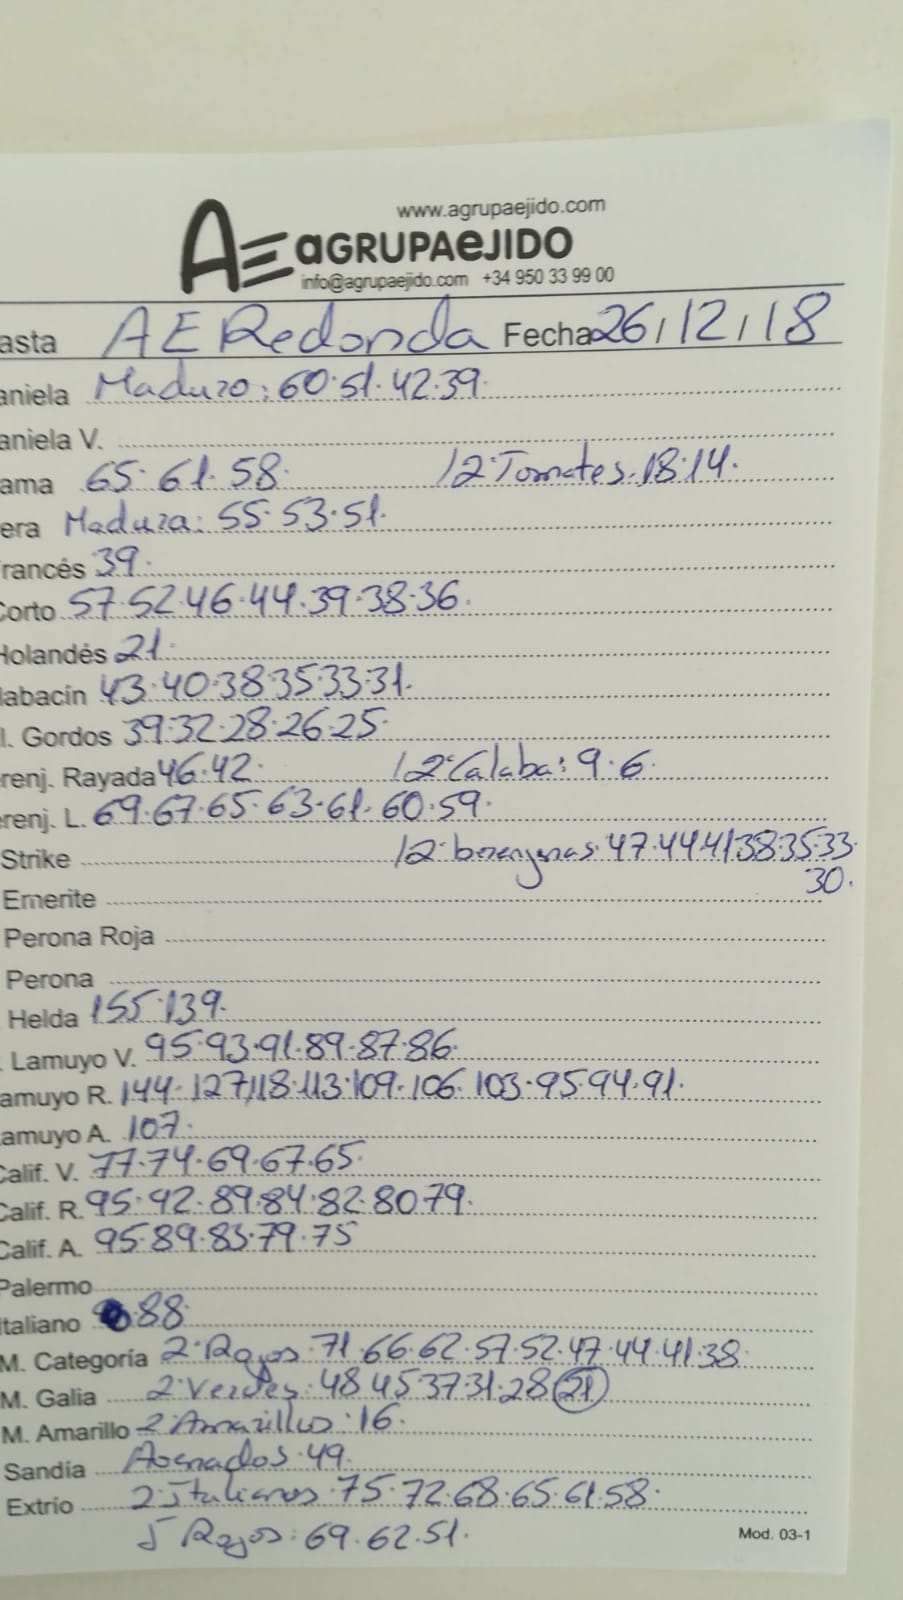 www.agrupaejido.com
AE aGRUPAeJIDO
info@agrupaejido.com +34 950 33 99 00
asta AE Redonda Fecha 26/12/18
aniela Maduro: 60.51.42.39.
aniela V.
ama 65.61.58. 12:Tomates.18.14.
era Madura: 55.53.51.
rancés 39.
Corto 57.52.46.44.39.38.36.
Holandés 21.
labacín 43.40.38.35.33.31.
l. Gordos 39.32.28.26.25.
renj. Rayada 46.42. 12:Calaba: 9.6.
renj. L. 69.67.65.63.61.60.59.
Strike 12:berenjenas.47.44.41.38.35.33.
30.
Emerite
Perona Roja
Perona
Helda 155.139.
. Lamuyo V. 95.93.91.89.87.86.
amuyo R. 144.127.118.113.109.106.103.95.94.91.
amuyo A. 107.
Calif. V. 77.74.69.67.65.
Calif. R. 95.92.89.84.82.80.79.
Calif. A. 95.89.83.79.75
Palermo
taliano 88.
M. Categoría 2:Rojos.71.66.62.57.52.47.44.41.38.
M. Galia 2:Verdes:48.45.37.31.28.21
M. Amarillo 2:Amarillos:16.
Sandía Asenados.49.
Extrío 2:Italianos.75.72.68.65.61.58.
5 Rojos: 69.62.51.
Mod. 03-1